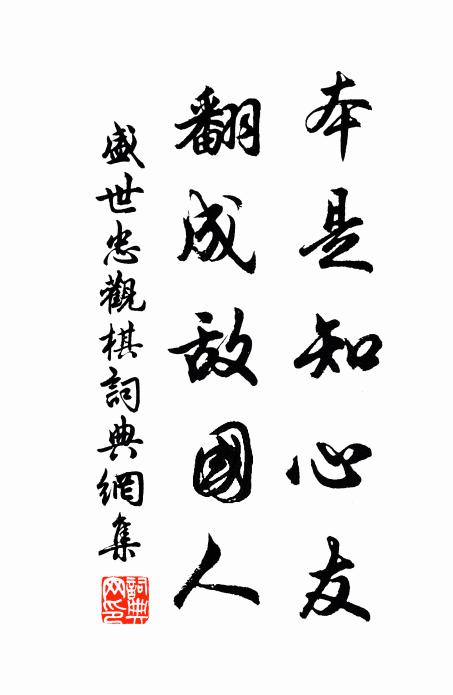 本是知心友
翻成敌國人
盛世忠觀棋詞典網集
詞典
网印